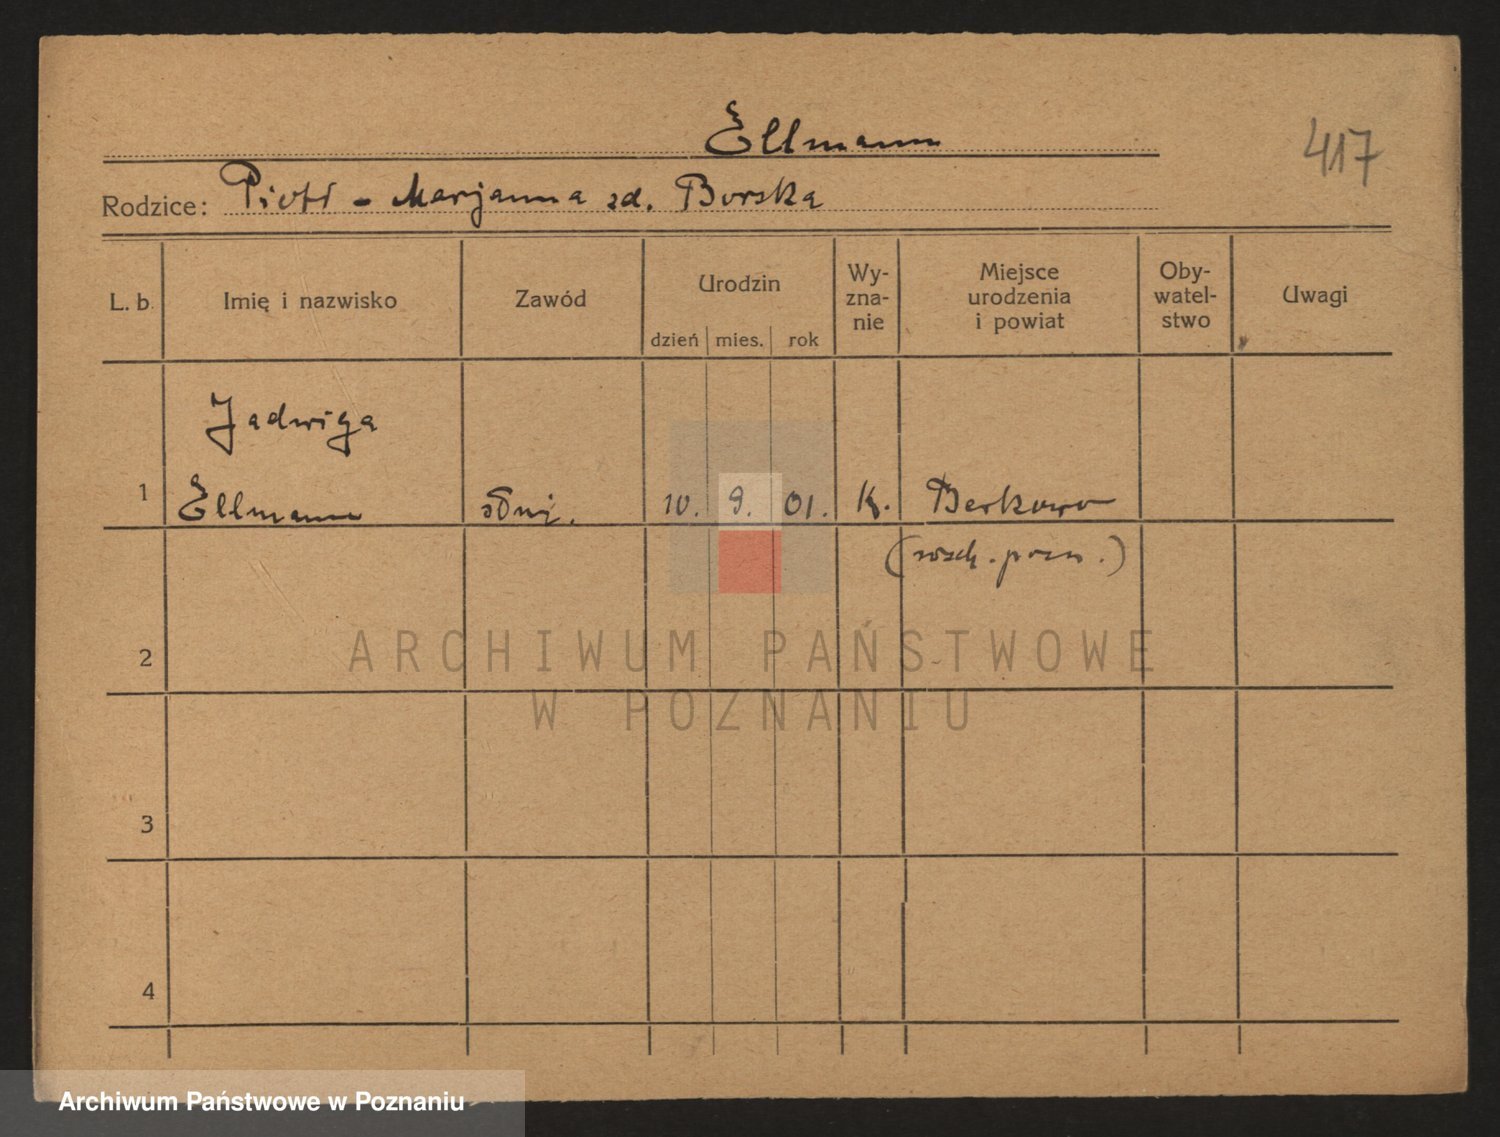 Ellmann
417
Rodzice: Piotr - Marjanna zd. Borska
L. b. Imię i nazwisko Zawód Urodzin dzień mies. rok Wy-zna-nie Miejsce urodzenia i powiat Oby-watel-stwo Uwagi
Jadwiga
1 Ellmann służ. 10. 9. 01. K. Berkowo
(wsch. pozn.)
2
ARCHIWUM PAŃSTWOWE
W POZNANIU
3
4
Archiwum Państwowe w Poznaniu